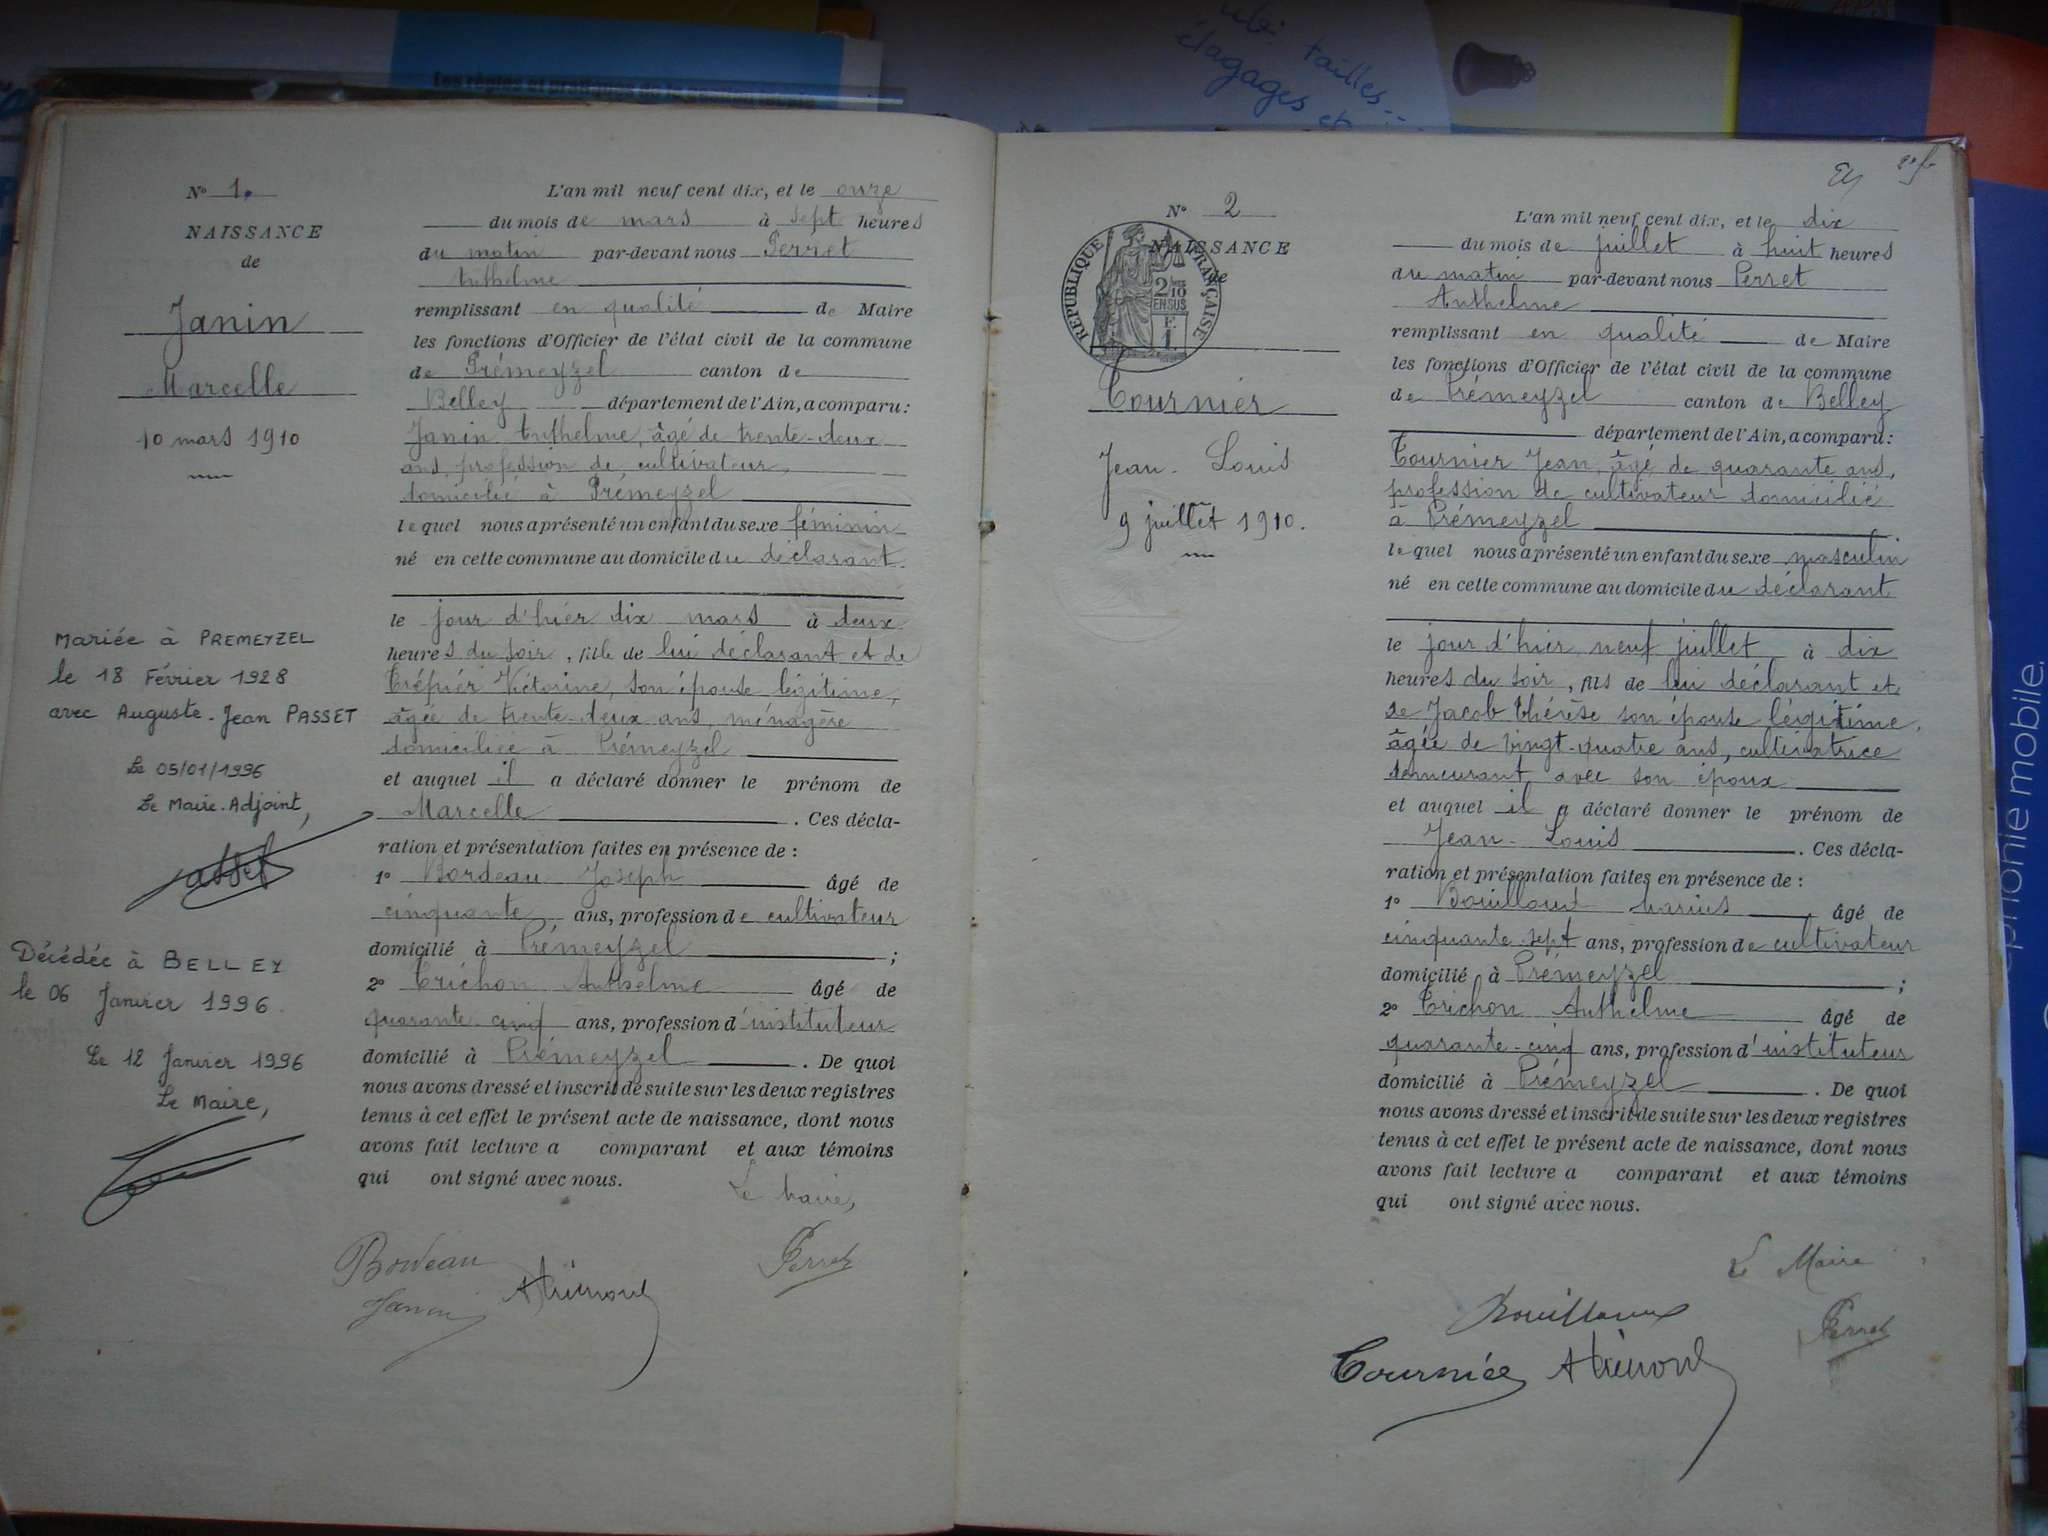 Les règles et pratiques de la
tailles
élagages et
N° 1.
NAISSANCE
de
Janin
Marcelle
10 mars 1910
Mariée à PREMEYZEL
le 18 Février 1928
avec Auguste-Jean PASSET
Le 05/01/1996
Le Maire-Adjoint,
Passet
Décédée à BELLEY
le 06 Janvier 1996.
Le 12 Janvier 1996
Le Maire,
L'an mil neuf cent dix, et le onze
du mois de mars à sept heures
du matin par-devant nous Perret
Anthelme
remplissant en qualité de Maire
les fonctions d'Officier de l'état civil de la commune
de Prémeyzel canton de
Belley département de l'Ain, a comparu:
Janin Anthelme, âgé de trente-deux
ans, profession de cultivateur,
domicilié à Prémeyzel
lequel nous a présenté un enfant du sexe féminin
né en cette commune au domicile du déclarant.
le jour d'hier dix mars à deux
heures du soir, fille de lui déclarant et de
Victorine, son épouse légitime,
âgée de trente-deux ans, ménagère
domiciliée à Prémeyzel
et auquel il a déclaré donner le prénom de
Marcelle. Ces décla-
ration et présentation faites en présence de :
1° Bordeau Joseph âgé de
cinquante ans, profession de cultivateur
domicilié à Prémeyzel ;
2° Trichon Anthelme âgé de
quarante-cinq ans, profession d'instituteur
domicilié à Prémeyzel. De quoi
nous avons dressé et inscrit de suite sur les deux registres
tenus à cet effet le présent acte de naissance, dont nous
avons fait lecture a comparant et aux témoins
qui ont signé avec nous.
Le Maire,
Bordeau
Perret
Janin
N° 2
NAISSANCE
de
RÉPUBLIQUE FRANÇAISE
2/10
EN SUS
F.
1.
Tournier
Jean-Louis
9 juillet 1910.
L'an mil neuf cent dix, et le dix
du mois de juillet à huit heures
du matin par-devant nous Perret
Anthelme
remplissant en qualité de Maire
les fonctions d'Officier de l'état civil de la commune
de Prémeyzel canton de Belley
département de l'Ain, a comparu:
Tournier Jean, âgé de quarante ans,
profession de cultivateur domicilié
à Prémeyzel
lequel nous a présenté un enfant du sexe masculin
né en cette commune au domicile du déclarant
le jour d'hier neuf juillet à dix
heures du soir, fils de lui déclarant et
de Jacob Thérèse son épouse légitime,
âgée de vingt-quatre ans, cultivatrice
demeurant avec son époux
et auquel il a déclaré donner le prénom de
Jean-Louis. Ces décla-
ration et présentation faites en présence de :
1° Bouilloud Marius âgé de
cinquante-sept ans, profession de cultivateur
domicilié à Prémeyzel ;
2° Trichon Anthelme âgé de
quarante-cinq ans, profession d'instituteur
domicilié à Prémeyzel. De quoi
nous avons dressé et inscrit de suite sur les deux registres
tenus à cet effet le présent acte de naissance, dont nous
avons fait lecture a comparant et aux témoins
qui ont signé avec nous.
Le Maire
Perret
Tournier
phonie mobile.